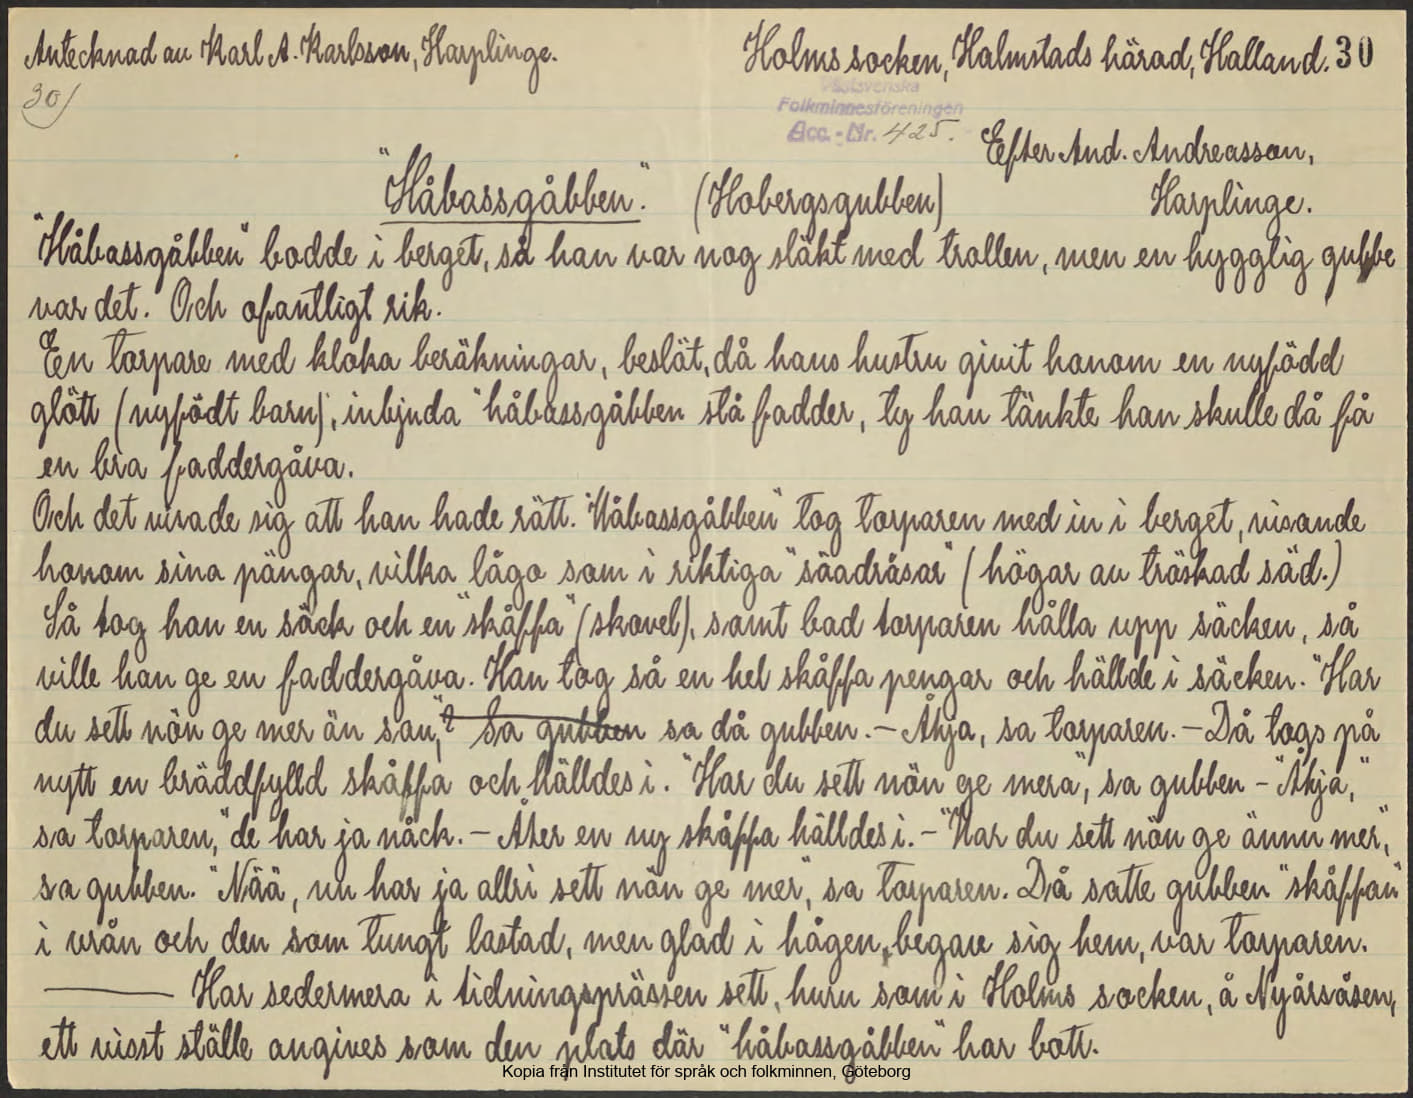 Antecknad av Karl A. Karlsson, Harplinge.
Holms socken, Halmstads härad, Halland. 30
30/
Västsvenska
Folkminnesföreningen
Acc.-Nr. 425.
Efter And. Andreasson,
Harplinge.
"Håbassgåbben". (Hobergsgubben)
"Håbassgåbben" bodde i berget, så han var nog släkt med trollen, men en hygglig gubbe
var det. Och ofantligt rik.
En torpare med kloka beräkningar, beslöt, då hans hustru givit honom en nyfödd
glött (nyfödt barn), inbjuda "håbassgåbben stå fadder, ty han tänkte han skulle då få
en bra faddergåva.
Och det visade sig att han hade rätt. "Håbassgåbben" tog torparen med in i berget, visande
honom sina pängar, vilka lågo som i riktiga "säadråsar" (högar av tröskad säd.)
Så tog han en säck och en "skåffa" (skovel), samt bad torparen hålla upp säcken, så
ville han ge en faddergåva. Han tog så en hel skåffa pengar och hällde i säcken. "Har
du sett nön ge mer än sau,"? Sa gubben sa då gubben. — Åhja, sa torparen. — Då togs på
nytt en bräddfylld skåffa och hälldes i. "Har du sett nön ge mera", sa gubben - "Åhja,"
sa torparen, "de har ja nåck. — Åter en ny skåffa hälldes i. — "Har du sett nön ge ännu mer,"
sa gubben. "Nää, nu har ja allri sett nön ge mer", sa torparen. Då satte gubben "skåffan"
i vrån och den som tungt lastad, men glad i hågen, begav sig hem, var torparen.
——— Har sedermera i tidningsprässen sett, huru som i Holms socken, å Nyårsåsen,
ett visst ställe angives som den plats där "håbassgåbben" har bott.
Kopia från Institutet för språk och folkminnen, Göteborg